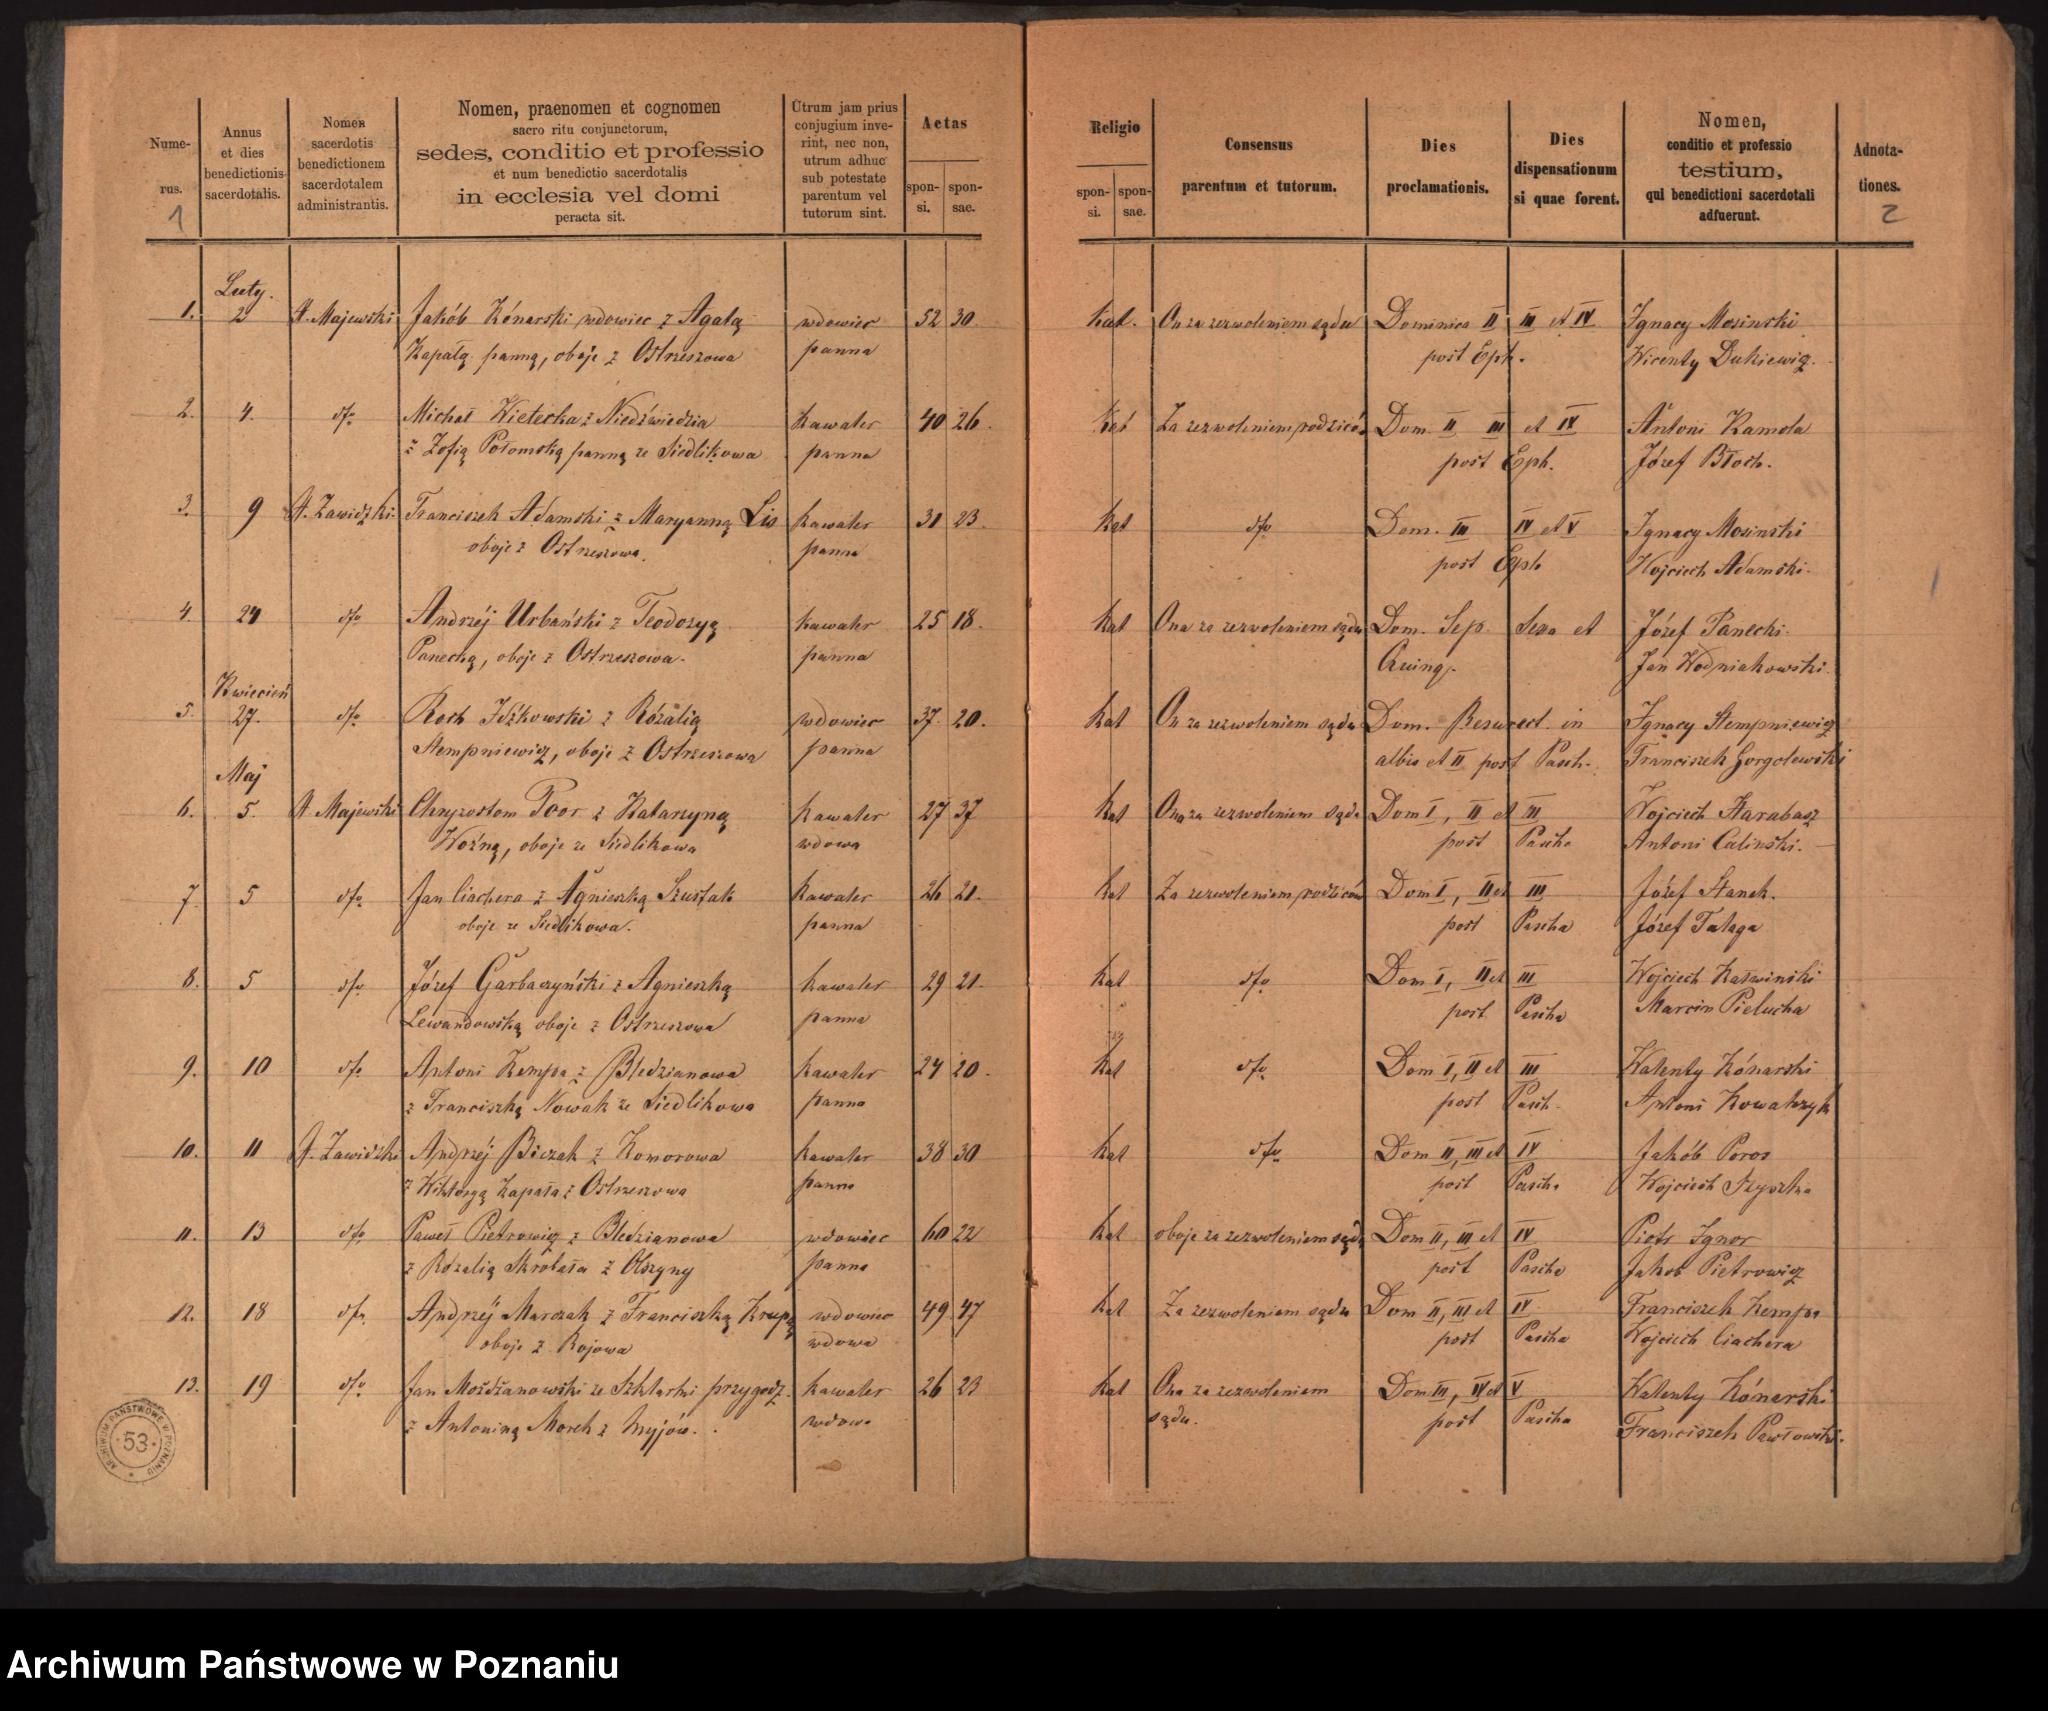 Nume-
rus.
1
Annus
et dies
benedictionis
sacerdotalis.
Nomen
sacerdotis
benedictionem
sacerdotalem
administrantis.
Nomen, praenomen et cognomen
sacro ritu conjunctorum,
sedes, conditio et professio
et num benedictio sacerdotalis
in ecclesia vel domi
peracta sit.
Utrum jam prius
conjugium inve-
rint, nec non,
utrum adhuc
sub potestate
parentum vel
tutorum sint.
Aetas
spon-
si.
spon-
sae.
Religio
spon-
si.
spon-
sae.
Consensus
parentum et tutorum.
Dies
proclamationis.
Dies
dispensationum
si quae forent.
Nomen,
conditio et professio
testium,
qui benedictioni sacerdotali
adfuerunt.
Adnota-
tiones.
2
Luty.
1. 2 A. Majewski Jakób Kónarski wdowiec z Agatą wdowiec 52 30. kat. On za zezwoleniem sądu Dominica II III et IV Ignacy Mosinski
Kapałą panną, oboje z Ostrzeszowa panna post Eph. Wicenty Dukiewicz.
2. 4. dto Michał Wietecka z Niedźwiedzia kawaler 40 26. kat Za zezwoleniem rodziców Dom. II III et IV Antoni Kamola
z Zofią Połomską panną ze Siedlikowa panna post Eph. Józef Błoch.
3. 9 A. Zawidzki Franciszek Adamski z Maryanną Lis kawaler 31 23. kat dto Dom. III IV et V Ignacy Mosinski
oboje z Ostrzeszowa. panna post Eph Wojciech Adamski.
4. 24 dto Andrzéj Urbański z Teodozyą kawaler 25 18. kat Ona za zezwoleniem sądu Dom. Sep. Sexa et Józef Panecki.
Panecką, oboje z Ostrzeszowa. panna Quinq. Jan Wodniakowski.
Kwiecień
5. 27. dto Roch Idźkowski z Rózalią wdowiec 37. 20. kat On za zezwoleniem sądu Dom. Resurect. in Ignacy Stempniewicz
Stempniewicz, oboje z Ostrzeszowa panna albis et II post Pasch. Franciszek Gorgolewski
Maj
6. 5. A. Majewski Chryzostom Poor z Katarzyną kawaler 27 37 kat Ona za zezwoleniem sądu Dom I, II et III Wojciech Harabasz
Woźną, oboje ze Siedlikowa wdowa post Pascha Antoni Calinski.
7. 5 dto Jan Ciachera z Agnieszką Szustak kawaler 26 21. kat Za zezwoleniem rodziców Dom I, II et III Józef Stanek.
oboje ze Siedlikowa. panna post Pascha Józef Talaga
8. 5 dto Józef Garbaczyński z Agnieszką kawaler 29 21. kat dto Dom I, II et III Wojciech Kałwinski
Lewandowską oboje z Ostrzeszowa panna post Pascha Marcin Pielucha
9. 10 dto Antoni Kempa z Bledzianowa kawaler 24 20. kat dto Dom I, II et III Walenty Kónarski
z Franciszką Nowak ze Siedlikowa panna post Pasch. Antoni Kowalczyk
10. 11 A. Zawidzki Andrzéj Biczak z Komorowa kawaler 38 30 kat dto Dom II, III et IV Jakób Poros
z Wiktoryą Kapała z Ostrzeszowa panna post Pascha Wojciech Szyszka
11. 13 dto Paweł Pietrowicz z Bledzianowa wdowiec 60 22 kat oboje za zezwoleniem sądu Dom II, III et IV Piotr Ignor
z Rózalią Skrobała z Olszyny panna post Pascha Jakob Pietrowicz
12. 18 dto Andrzéj Marczak z Franciszką Krupą wdowiec 49 47 kat Za zezwoleniem sądu Dom II, III et IV Franciszek Kempa
oboje z Rojowa wdowa post Pascha Wojciech Ciachera
13. 19 dto Jan Możdżanowski ze Szklarki przygodz. kawaler 26 23 kat Ona za zezwoleniem Dom III, IV et V Walenty Kónarski
z Antoniną Morch z Myjów. wdowa sądu. post Pascha Franciszek Pawłowski.
ARCHIWUM PAŃSTWOWE W POZNANIU
53
Archiwum Państwowe w Poznaniu